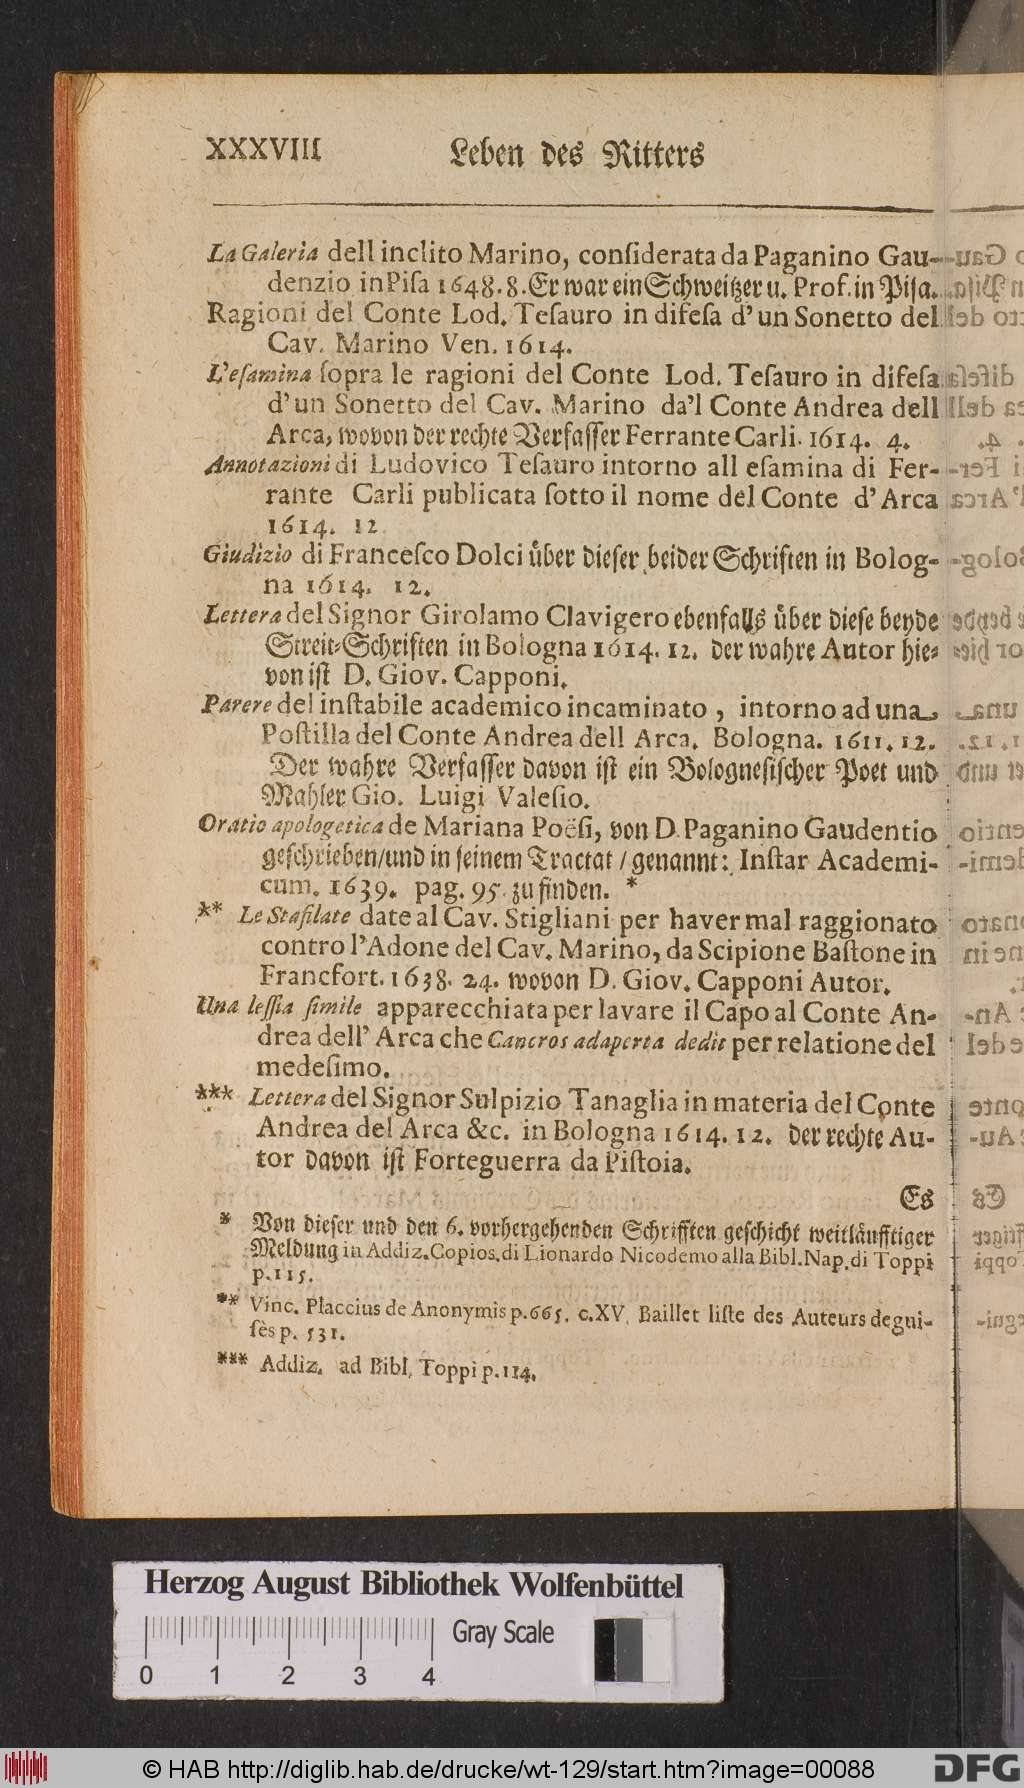 XXXVIII Leben des Ritters
La Galeria dell inclito Marino, conſiderata da Paganino Gau-
denzio in Piſa 1648. 8. Er war ein Schweitzer u. Prof. in Piſa.
Ragioni del Conte Lod. Teſauro in difeſa d' un Sonetto del
Cav. Marino Ven. 1614.
L'eſamina ſopra le ragioni del Conte Lod. Teſauro in difeſa
d' un Sonetto del Cav. Marino da'l Conte Andrea dell
Arca, wovon der rechte Verfaſſer Ferrante Carli. 1614. 4.
Annotazioni di Ludovico Teſauro intorno all eſamina di Fer-
rante Carli publicata ſotto il nome del Conte d' Arca
1614. 12
Giudizio di Franceſco Dolci uͤber dieſer beider Schriften in Bolog-
na 1614. 12.
Lettera del Signor Girolamo Clavigero ebenfalls uͤber dieſe beyde
Streit-Schriften in Bologna 1614. 12. der wahre Autor hie-
von iſt D. Giov. Capponi.
Parere del inſtabile academico incaminato, intorno ad una
Poſtilla del Conte Andrea dell Arca. Bologna. 1611. 12.
Der wahre Verfaſſer davon iſt ein Bologneſiſcher Poet und
Mahler Gio. Luigi Valeſio.
Oratio apologetica de Mariana Poëſi, von D. Paganino Gaudentio
geſchrieben/ und in ſeinem Tractat / genannt: Inſtar Academi-
cum. 1639. pag. 95. zu finden. *
** Le Staſilate date al Cav. Stigliani per haver mal raggionato
contro l'Adone del Cav. Marino, da Scipione Baſtone in
Francfort. 1638. 24. wovon D. Giov. Capponi Autor.
Una leſſia ſimile apparecchiata per lavare il Capo al Conte An-
drea dell' Arca che Cancros adaperta dedit per relatione del
medeſimo.
*** Lettera del Signor Sulpizio Tanaglia in materia del Conte
Andrea del Arca &c. in Bologna 1614. 12. der rechte Au-
tor davon iſt Forteguerra da Piſtoia.
Es
* Von dieſer und den 6. vorhergehenden Schrifften geſchicht weitlaͤufftiger
Meldung in Addiz. Copios. di Lionardo Nicodemo alla Bibl. Nap. di Toppi
p. 115.
** Vinc. Placcius de Anonymis p. 665. c. XV. Baillet liſte des Auteurs degui-
ſès p. 531.
*** Addiz. ad Bibl. Toppi p. 114.
Herzog August Bibliothek Wolfenbüttel
Gray Scale
0 1 2 3 4
© HAB http://diglib.hab.de/drucke/wt-129/start.htm?image=00088
DFG